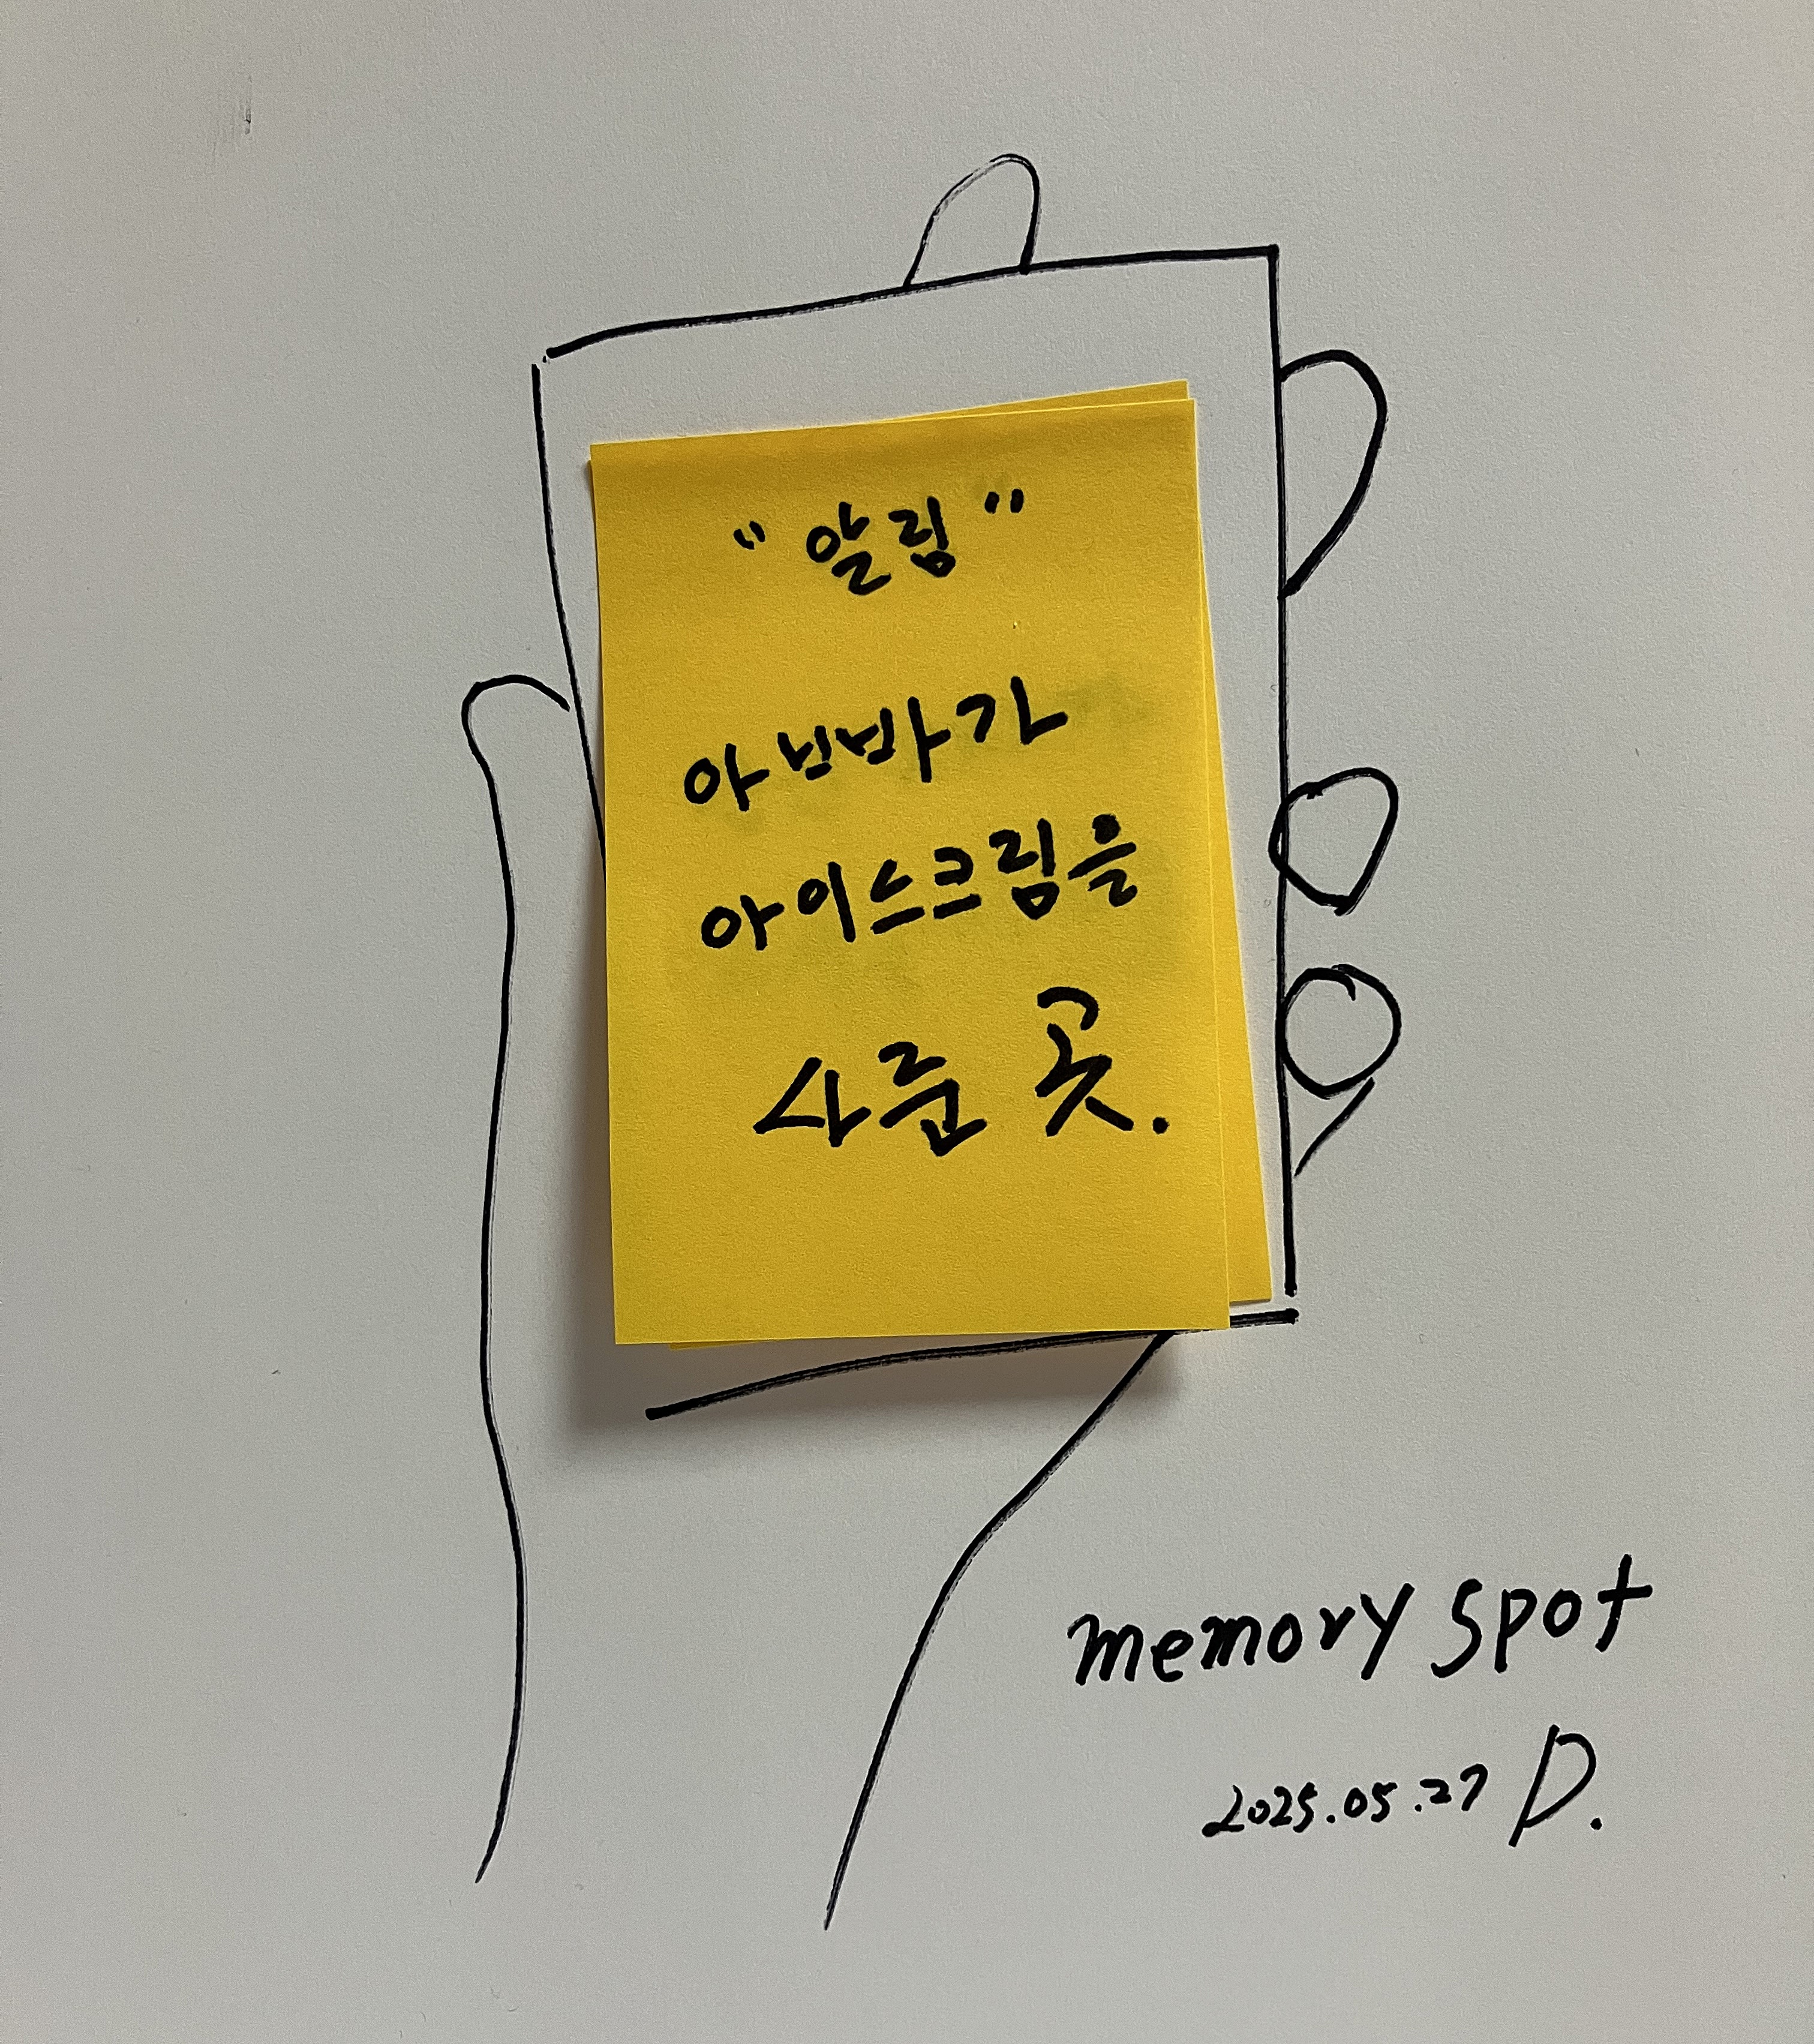 "알림"
아빠가
아이스크림을
사준 곳.
memory spot
2025.05.27 D.